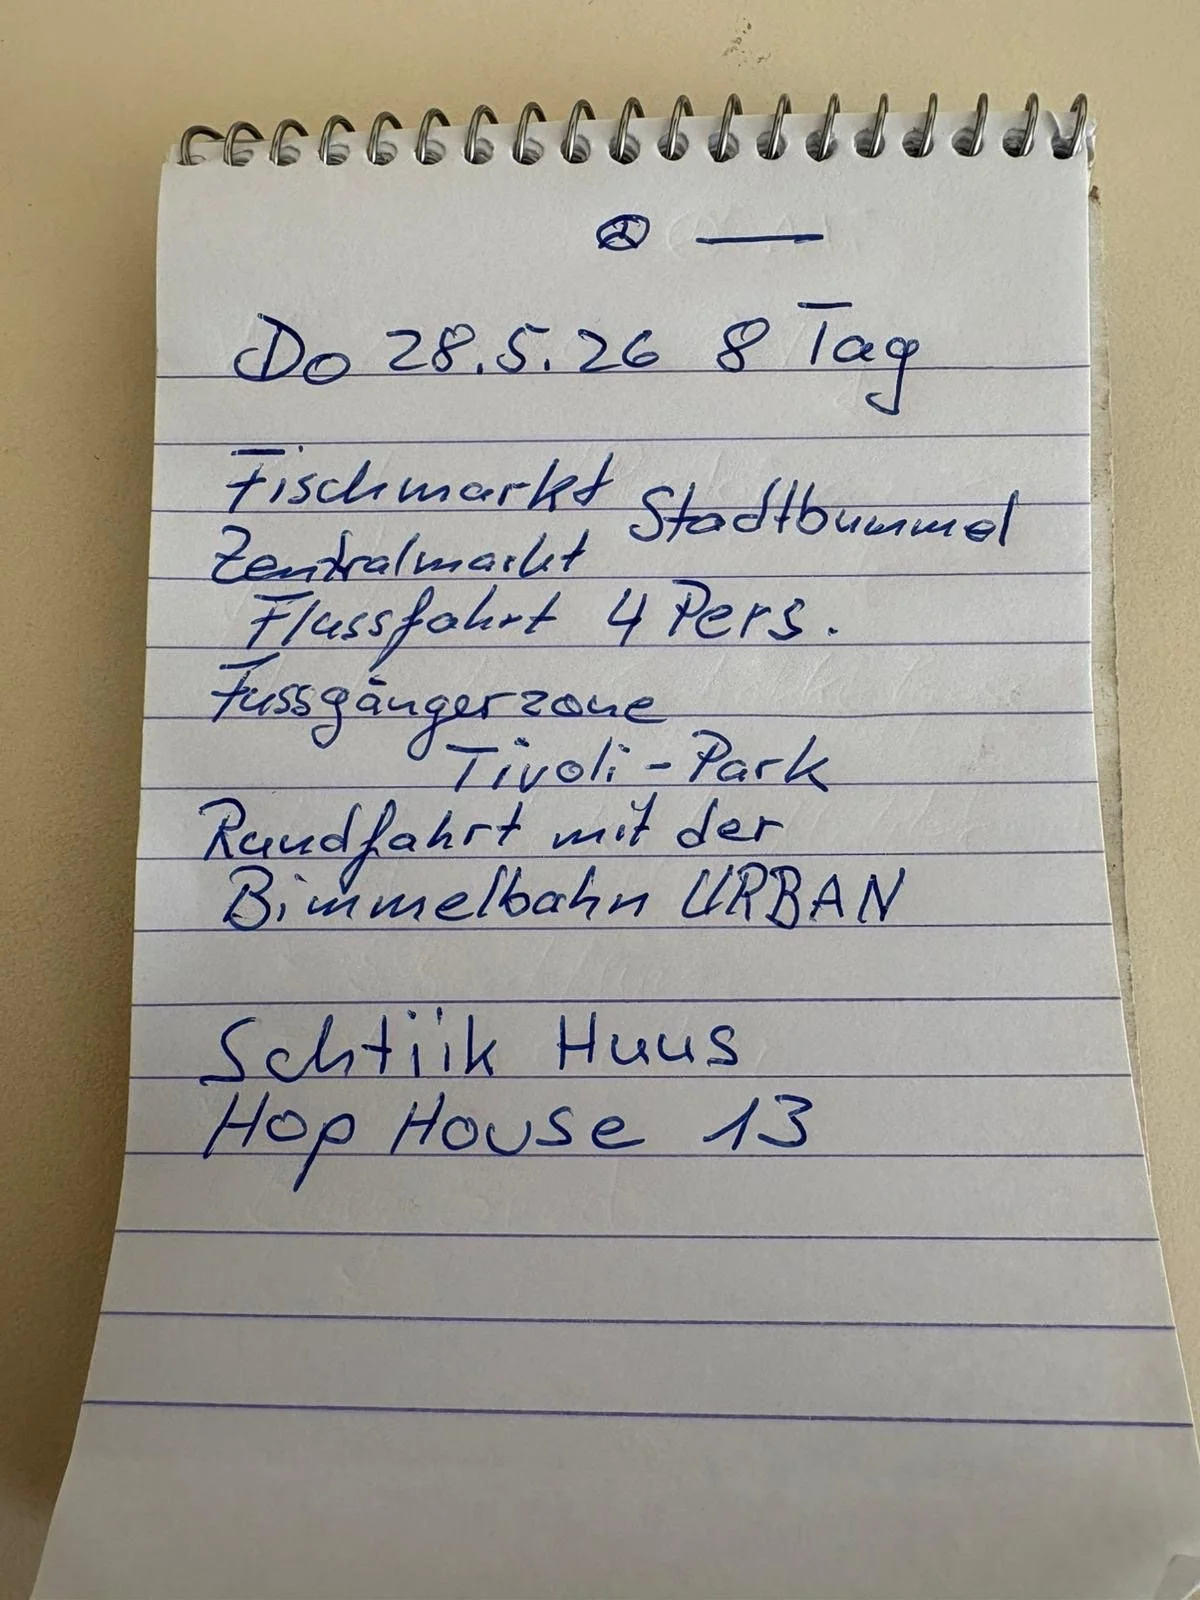 Do 28.5.26 8 Tag
Fischmarkt Stadtbummel
Zentralmarkt
Flussfahrt 4 Pers.
Fussgängerzone
Tivoli-Park
Rundfahrt mit der
Bimmelbahn URBAN
Schtiik Huus
Hop House 13